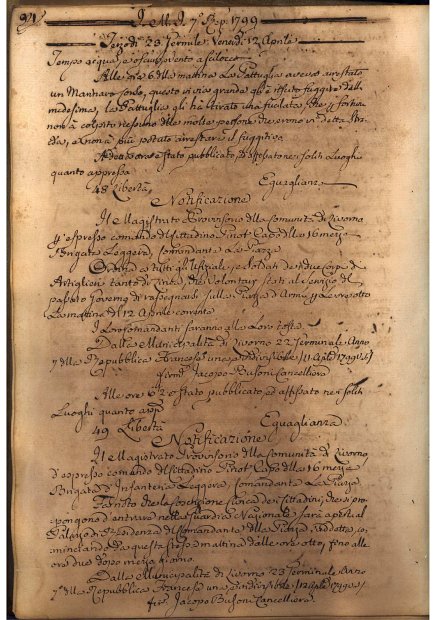 I. M. I. 7º Rep. 1799
23 Germile Venerdì 12 Aprile
Tempo acqua, e vento a scilocco
Alle ore 6 della mattina La Pattuglia avendo arrestato
un Marinaro questo in via grande gli è fuggito dalla
medesima, la Pattuglia gli ha tirato una fucilata, che p. fortuna
non à colpito nessuno della molte persone che erono in detta stra
da, e non à più potuto arrestare il fuggitivo
è stato pubblicato, ed affisso nei soliti Luoghi
quanto appresso
48 Libertà Eguaglianza
Notificazione
Il Magistrato Provvisorio della Comunità di Livorno
p. espresso comando del Cittadino Pinot Capo della 16 mezza
Brigata Leggera, Comandante La Piazza
Ordina a tutti gli Ufiziali, e Soldati dei due Corpi di
Artiglieri tanto di che Volontari stati al Servizio del
passato Governo di rassegnarsi sulla Piazza d'Arme
La mattina del 12 Aprile corrente
I Loro Comandanti saranno alla Loro testa
Dalla Municipalità di Livorno 22 Germinale Anno
7 della Repubblica Francese una ed indivisibile / 11 Aprile 1799
Jacopo Busoni Cancelliere
Alle ore è stato pubblicato ed affisso nei soliti
Luoghi quanto app.
49 Libertà Eguaglianza
Notificazione
Il Magistrato Provvisorio della Comunità di Livorno,
d'espresso comando del Cittadino Pinot Capo della 16 mezza
Brigata d'Infanteria Leggera, Comandante La Piazza
Fa noto che la Coscrizione dei Cittadini, che si pro
pongono d'entrare nella Guardia Nazionale sarà aperta al
Palazzo di Residenza di Comandante della Piazza, co
minciando da questa stessa mattina dalle ore otto, fino alle
ore due dopo mezzo giorno
Dalla Municipalità di Livorno 23 Germinale Anno
7º della Repubblica Francese una ed indivisibile / 12 Aprile 1799
Jacopo Busoni Cancelliere